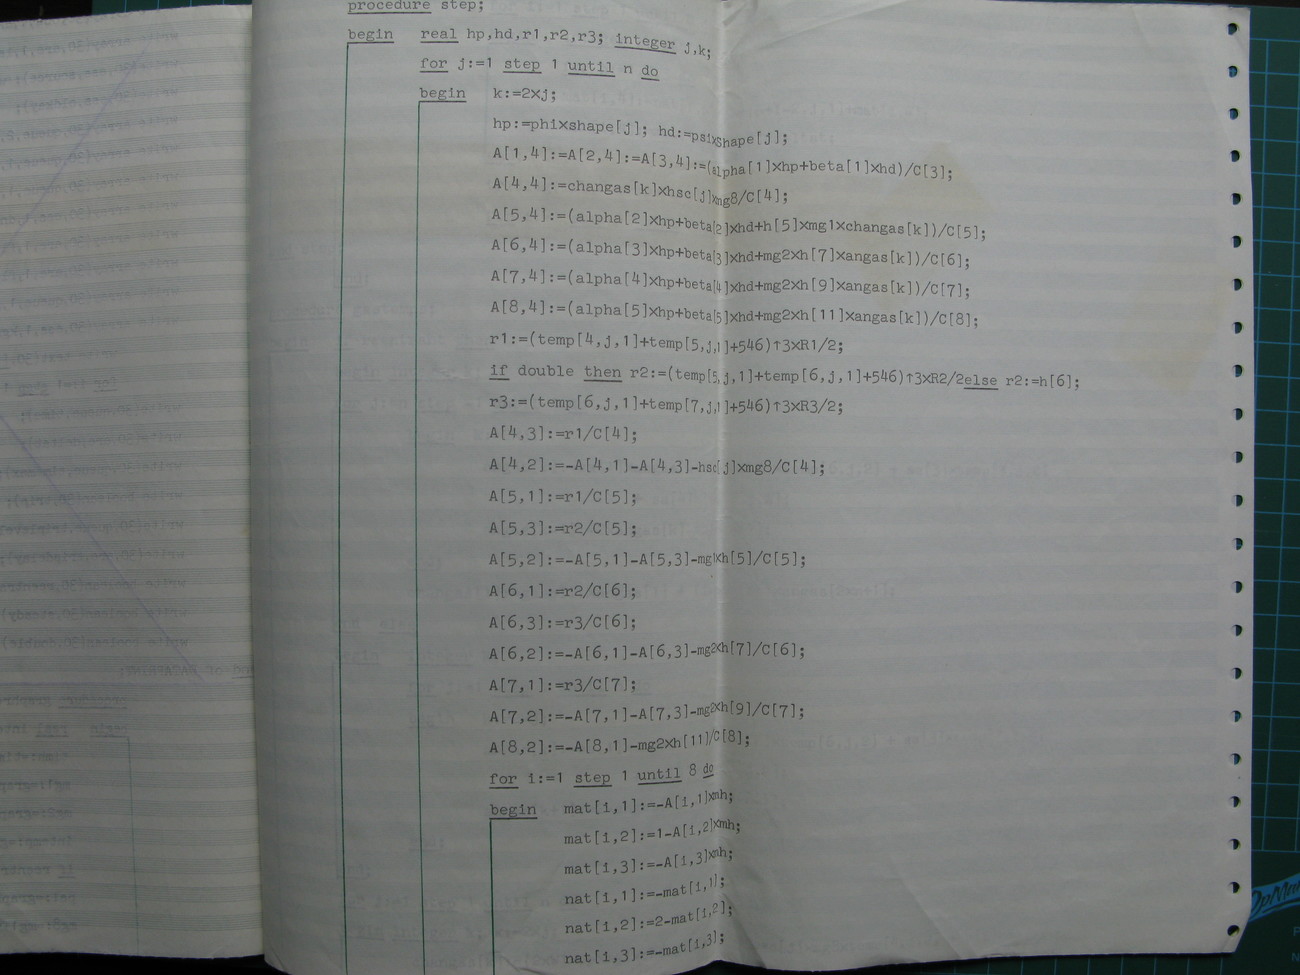 procedure step;
begin real hp,hd,r1,r2,r3; integer j,k;
for j:=1 step 1 until n do
begin k:=2×j;
hp:=phi×shape[j]; hd:=psi×shape[j];
A[1,4]:=A[2,4]:=A[3,4]:=(alpha[1]×hp+beta[1]×hd)/C[3];
A[4,4]:=changas[k]×hsc[j]×mg8/C[4];
A[5,4]:=(alpha[2]×hp+beta[2]×hd+h[5]×mg1×changas[k])/C[5];
A[6,4]:=(alpha[3]×hp+beta[3]×hd+mg2×h[7]×angas[k])/C[6];
A[7,4]:=(alpha[4]×hp+beta[4]×hd+mg2×h[9]×angas[k])/C[7];
A[8,4]:=(alpha[5]×hp+beta[5]×hd+mg2×h[11]×angas[k])/C[8];
r1:=(temp[4,j,1]+temp[5,j,1]+546)↑3×R1/2;
if double then r2:=(temp[5,j,1]+temp[6,j,1]+546)↑3×R2/2else r2:=h[6];
r3:=(temp[6,j,1]+temp[7,j,1]+546)↑3×R3/2;
A[4,3]:=r1/C[4];
A[4,2]:=-A[4,1]-A[4,3]-hsc[j]×mg8/C[4];
A[5,1]:=r1/C[5];
A[5,3]:=r2/C[5];
A[5,2]:=-A[5,1]-A[5,3]-mg1×h[5]/C[5];
A[6,1]:=r2/C[6];
A[6,3]:=r3/C[6];
A[6,2]:=-A[6,1]-A[6,3]-mg2×h[7]/C[6];
A[7,1]:=r3/C[7];
A[7,2]:=-A[7,1]-A[7,3]-mg2×h[9]/C[7];
A[8,2]:=-A[8,1]-mg2×h[11]/C[8];
for i:=1 step 1 until 8 do
begin mat[i,1]:=-A[i,1]×mh;
mat[i,2]:=1-A[i,2]×mh;
mat[i,3]:=-A[i,3]×mh;
nat[i,1]:=-mat[i,1];
nat[i,2]:=2-mat[i,2];
nat[i,3]:=-mat[i,3];